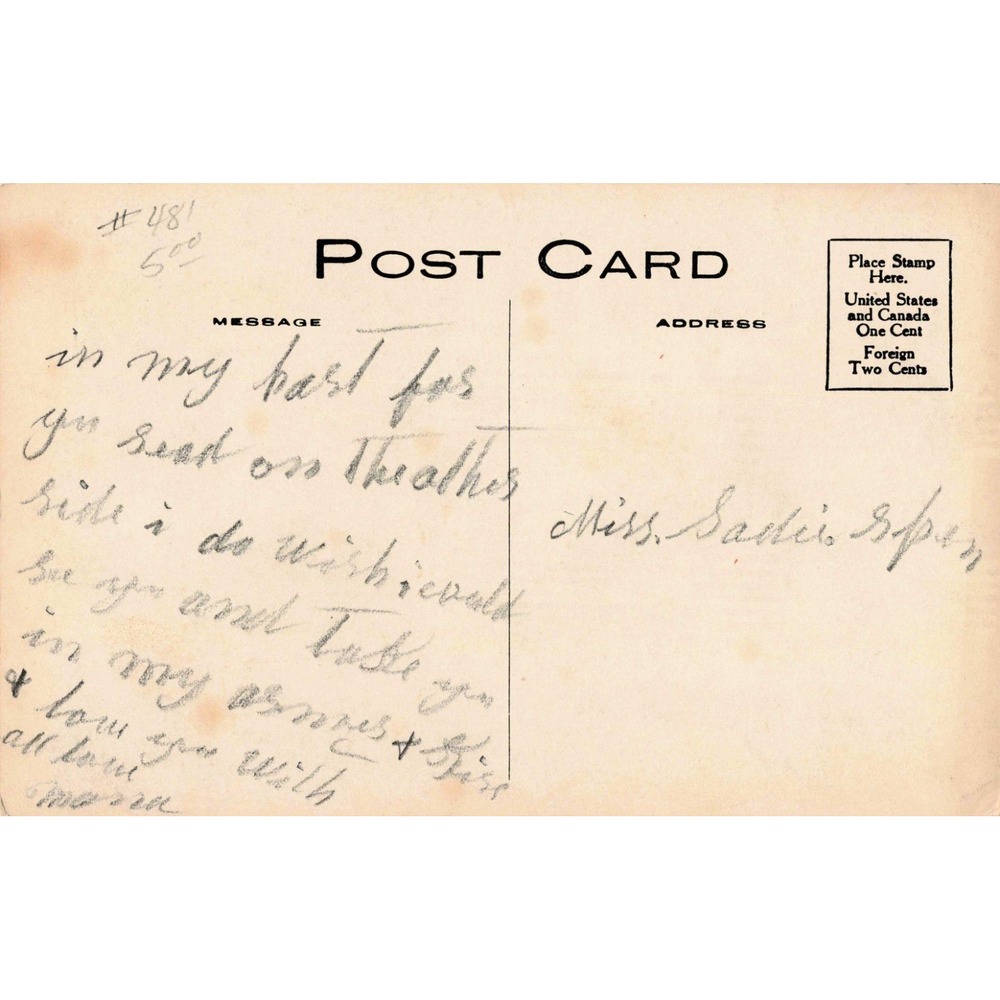 #481
5⁰⁰
POST CARD
Place Stamp
Here.
United States
and Canada
One Cent
Foreign
Two Cents
MESSAGE
ADDRESS
in my hast for
yu sead on The other
side i do wish i could
see yu and Take yu
in my armes + Kiss
+ love you with
all love
mama
Miss. Sadie